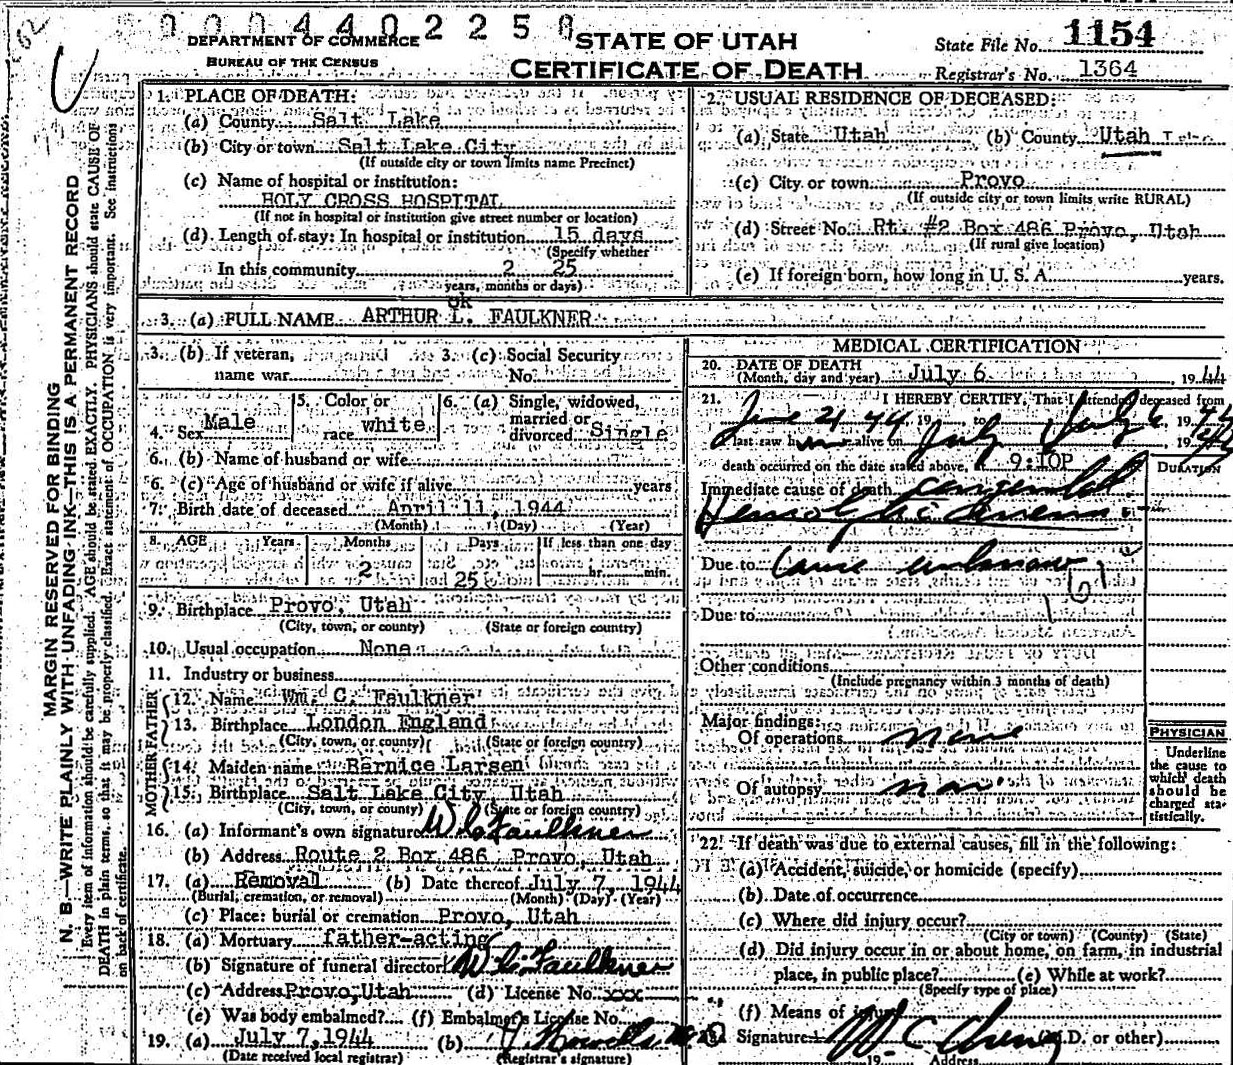 0 0 0 4 4 0 2 2 5 8
62
DEPARTMENT OF COMMERCE
BUREAU OF THE CENSUS
STATE OF UTAH
CERTIFICATE OF DEATH
State File No. 1154
Registrar's No. 1364
MARGIN RESERVED FOR BINDING
N. B.—WRITE PLAINLY WITH UNFADING INK—THIS IS A PERMANENT RECORD
Every item of information should be carefully supplied. AGE should be stated EXACTLY. PHYSICIANS should state CAUSE OF
DEATH in plain terms, so that it may be properly classified. Exact statement of OCCUPATION is very important. See instructions
on back of certificate.
1. PLACE OF DEATH:
(a) County Salt Lake
(b) City or town Salt Lake City
(If outside city or town limits name Precinct)
(c) Name of hospital or institution:
HOLY CROSS HOSPITAL
(If not in hospital or institution give street number or location)
(d) Length of stay: In hospital or institution 15 days
(Specify whether
In this community 2 25
years, months or days)
2. USUAL RESIDENCE OF DECEASED:
(a) State Utah (b) County Utah
(c) City or town Provo
(If outside city or town limits write RURAL)
(d) Street No. Rt. #2 Box 486 Provo, Utah
(If rural give location)
(e) If foreign born, how long in U. S. A. years.
ok
3. (a) FULL NAME ARTHUR L. FAULKNER
3. (b) If veteran, name war
3. (c) Social Security No.
4. Sex Male
5. Color or race white
6. (a) Single, widowed, married or divorced Single
6. (b) Name of husband or wife
6. (c) Age of husband or wife if alive years
7. Birth date of deceased April 11, 1944
(Month) (Day) (Year)
8. AGE Years Months Days If less than one day
2 25 hr. min.
9. Birthplace Provo, Utah
(City, town, or county) (State or foreign country)
10. Usual occupation None
11. Industry or business
FATHER
12. Name Wm. C. Faulkner
13. Birthplace London England
(City, town, or county) (State or foreign country)
MOTHER
14. Maiden name Bernice Larsen
15. Birthplace Salt Lake City Utah
(City, town, or county) (State or foreign country)
16. (a) Informant's own signature W C Faulkner
(b) Address Route 2 Box 486 Provo, Utah
17. (a) Removal (b) Date thereof July 7, 1944
(Burial, cremation, or removal) (Month) (Day) (Year)
(c) Place: burial or cremation Provo, Utah
18. (a) Mortuary father-acting
(b) Signature of funeral director W C Faulkner
(c) Address Provo, Utah (d) License No. xxx
(e) Was body embalmed? (f) Embalmer's License No.
19. (a) July 7, 1944 (b)
(Date received local registrar) (Registrar's signature)
MEDICAL CERTIFICATION
20. DATE OF DEATH
(Month, day and year) July 6, 1944
21. I HEREBY CERTIFY, That I attended deceased from
June 21 44 19 , to July 6, 1944
last saw him alive on July 6, 1944
death occurred on the date stated above, at 9:10P
DURATION
Immediate cause of death congenital
Hemolytic Anemia
Due to Cause unknown
161
Due to
Other conditions
(Include pregnancy within 3 months of death)
Major findings:
Of operations none
Of autopsy non
PHYSICIAN
Underline
the cause to
which death
should be
charged sta-
tistically.
22. If death was due to external causes, fill in the following:
(a) Accident, suicide, or homicide (specify)
(b) Date of occurrence
(c) Where did injury occur?
(City or town) (County) (State)
(d) Did injury occur in or about home, on farm, in industrial
place, in public place? (e) While at work?
(Specify type of place)
(f) Means of injury
Signature (M.D. or other)
19 Address